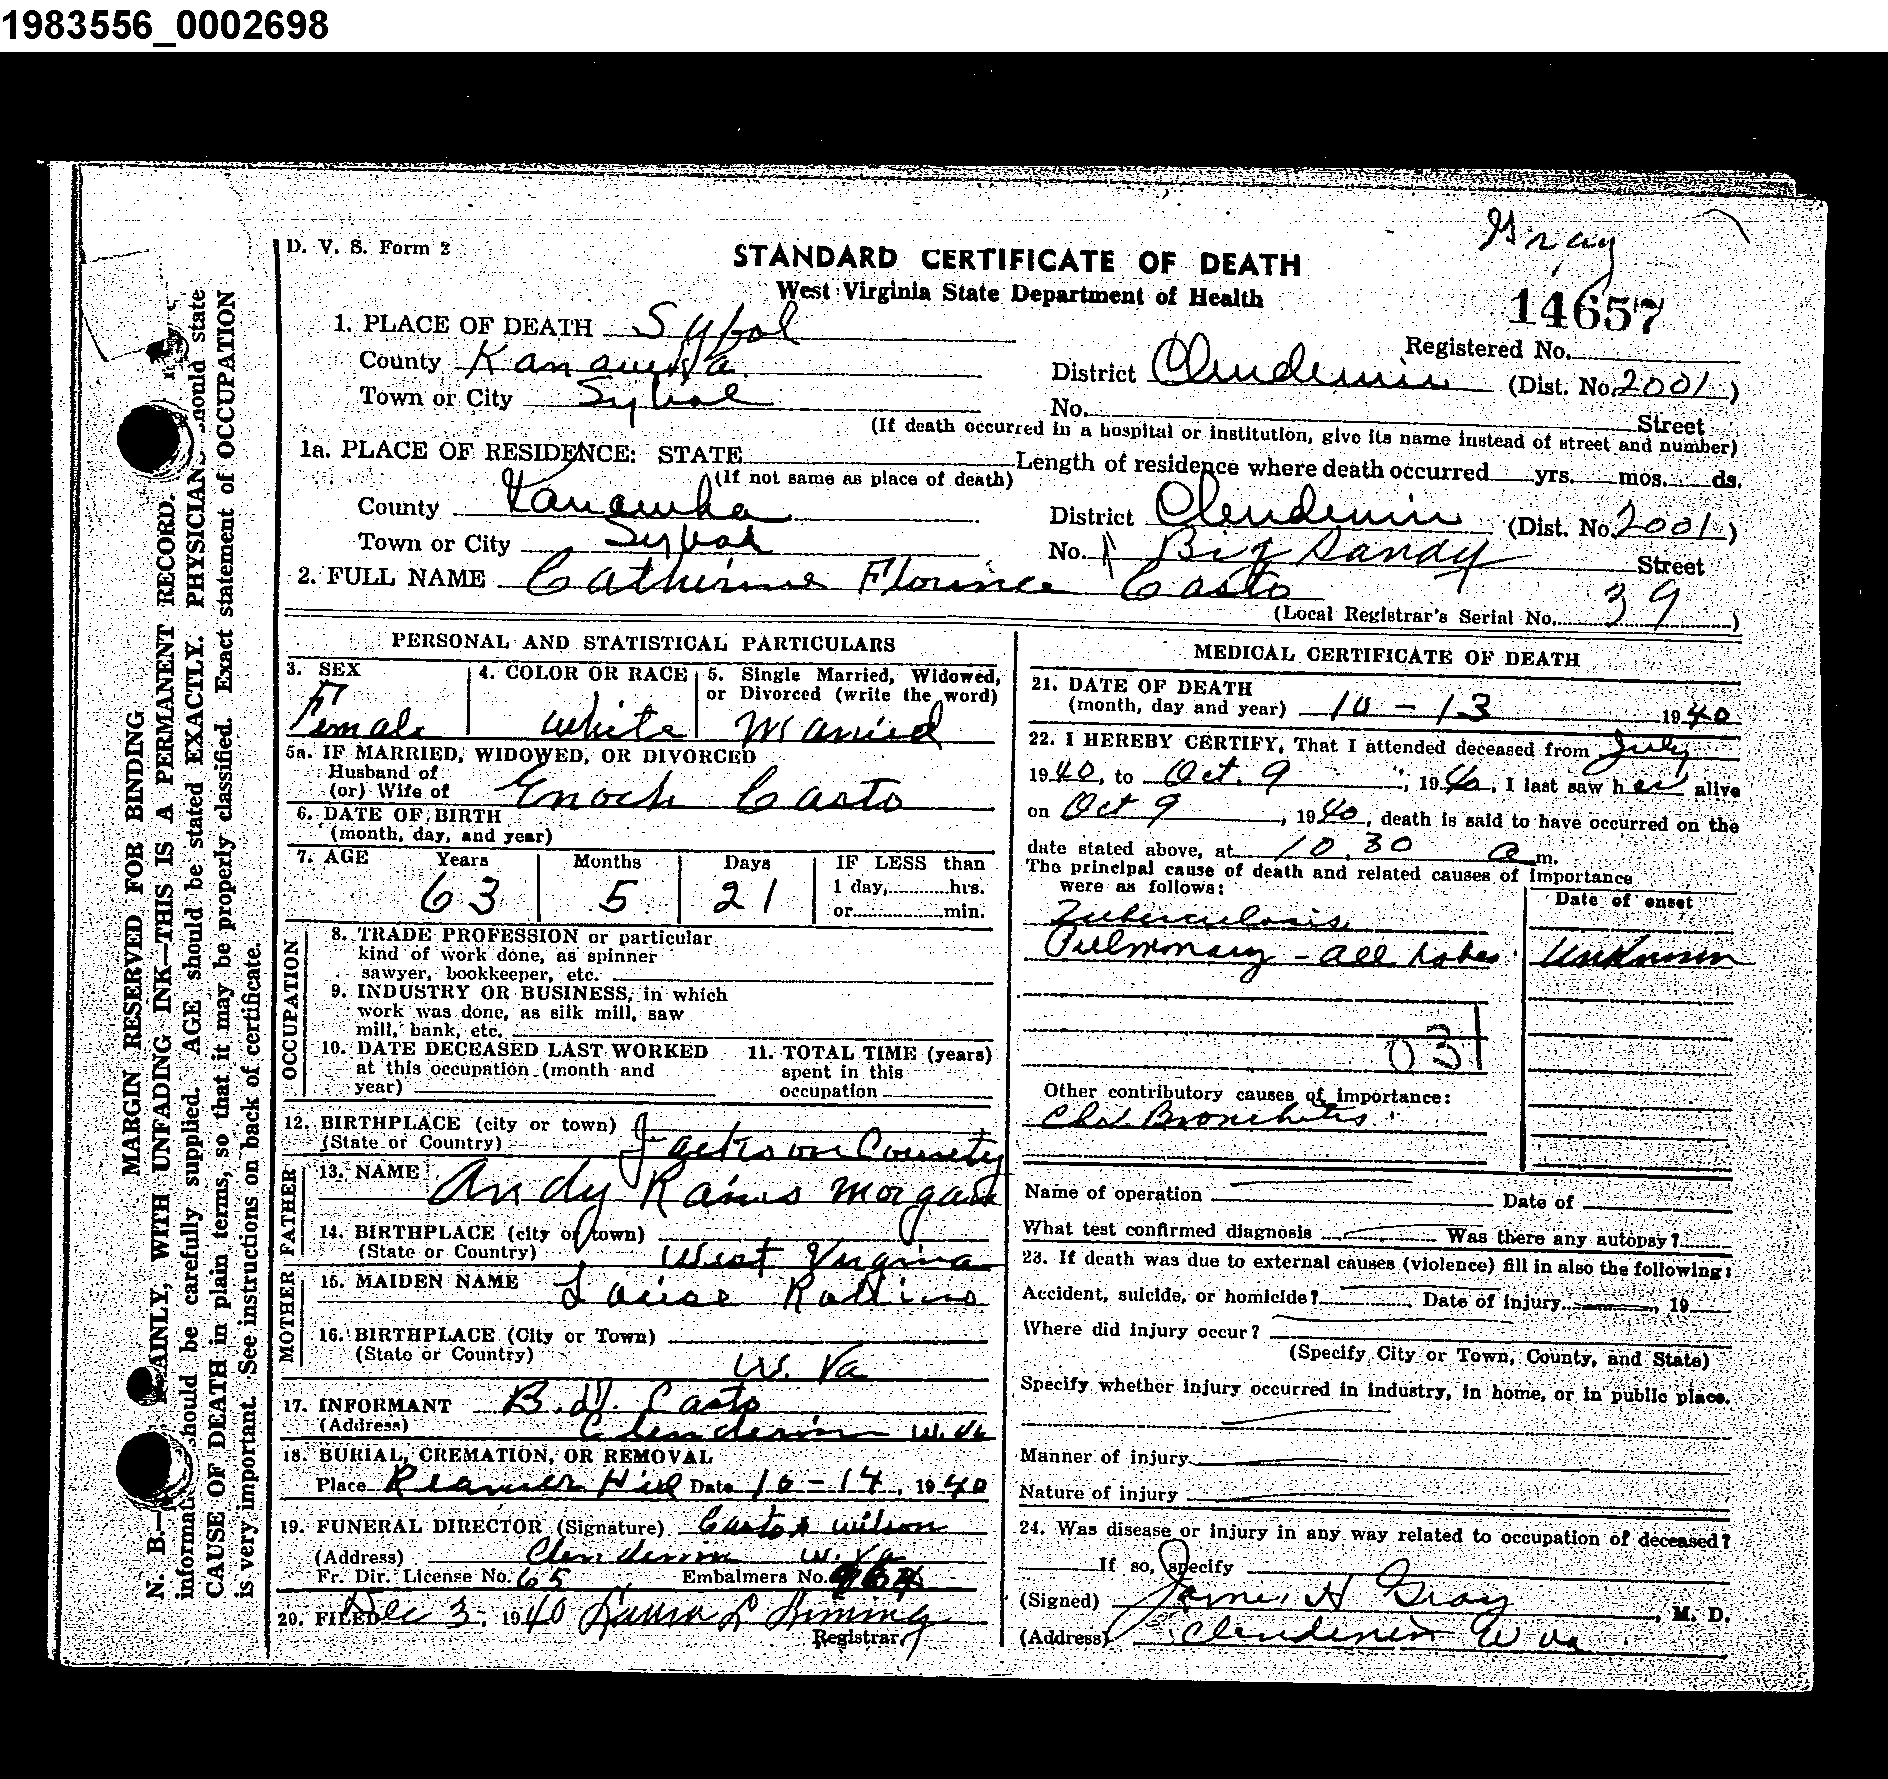 1983556_0002698
Gray
D. V. S. Form 2
STANDARD CERTIFICATE OF DEATH
West Virginia State Department of Health
14657
1. PLACE OF DEATH Sybol
Registered No.
County Kanawha
District Clendenin (Dist. No. 2001)
Town or City Sybol
No. Street
(If death occurred in a hospital or institution, give its name instead of street and number)
1a. PLACE OF RESIDENCE: STATE
Length of residence where death occurred yrs. mos. ds.
(If not same as place of death)
County Kanawha
District Clendenin (Dist. No. 2001)
Town or City Sybol
No. Big Sandy Street
2. FULL NAME Catherine Florince Casto
(Local Registrar's Serial No. 39)
PERSONAL AND STATISTICAL PARTICULARS
3. SEX
Female
4. COLOR OR RACE
white
5. Single Married, Widowed,
or Divorced (write the word)
Married
5a. IF MARRIED, WIDOWED, OR DIVORCED
Husband of
(or) Wife of Enoch Casto
6. DATE OF BIRTH
(month, day, and year)
7. AGE Years Months Days IF LESS than
63 5 21
1 day, hrs.
or min.
OCCUPATION
8. TRADE PROFESSION or particular
kind of work done, as spinner
sawyer, bookkeeper, etc.
9. INDUSTRY OR BUSINESS, in which
work was done, as silk mill, saw
mill, bank, etc.
10. DATE DECEASED LAST WORKED
at this occupation (month and
year)
11. TOTAL TIME (years)
spent in this
occupation
12. BIRTHPLACE (city or town)
(State or Country) Jackson County
FATHER
13. NAME Andy Rains Morgan
14. BIRTHPLACE (city or town)
(State or Country) West Virginia
MOTHER
15. MAIDEN NAME Louise Rollins
16. BIRTHPLACE (City or Town)
(State or Country) W. Va
17. INFORMANT Casto
(Address) Clendenin W. Va
18. BURIAL, CREMATION, OR REMOVAL
Place Reamer Hill Date 10-14, 1940
19. FUNERAL DIRECTOR (Signature) Casto & Wilson
(Address) Clendenin W. Va
Fr. Dir. License No. 65 Embalmers No.
20. FILED Dec 3, 1940
Registrar
MEDICAL CERTIFICATE OF DEATH
21. DATE OF DEATH
(month, day and year) 10-13 1940
22. I HEREBY CERTIFY, That I attended deceased from July
1940, to Oct. 9, 1940, I last saw her alive
on Oct 9, 1940, death is said to have occurred on the
date stated above, at 10.30 a m.
The principal cause of death and related causes of importance
were as follows:
Date of onset
Tuberculosis
Pulmonary - all lobes Unknown
031
Other contributory causes of importance:
Chr. Bronchitis
Name of operation Date of
What test confirmed diagnosis Was there any autopsy?
23. If death was due to external causes (violence) fill in also the following:
Accident, suicide, or homicide? Date of injury , 19
Where did injury occur?
(Specify City or Town, County, and State)
Specify whether injury occurred in industry, in home, or in public place.
Manner of injury
Nature of injury
24. Was disease or injury in any way related to occupation of deceased?
If so, specify
(Signed) James H Gray, M. D.
(Address) Clendenin W va
MARGIN RESERVED FOR BINDING
N. B.— AINLY, WITH UNFADING INK—THIS IS A PERMANENT RECORD.
informat should be carefully supplied. AGE should be stated EXACTLY. PHYSICIANS should state
CAUSE OF DEATH in plain terms, so that it may be properly classified. Exact statement of OCCUPATION
is very important. See instructions on back of certificate.